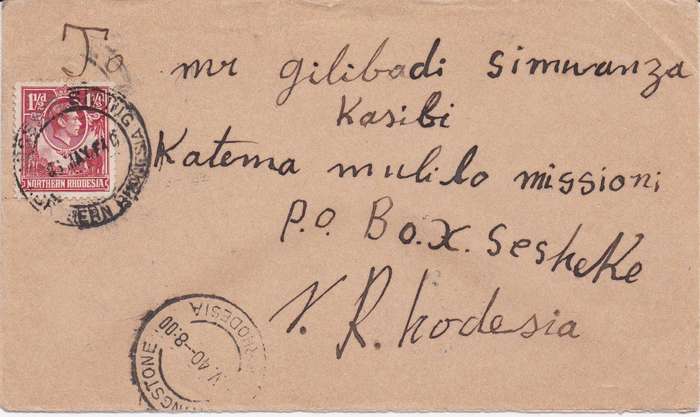 To
mr gilibadi simwanza
Kasibi
Katema mulilo missioni
P.O. Box. Sesheke
N. Rhodesia
1½d 1½d
NORTHERN RHODESIA
LIVINGSTONE
V. 40-8:00
RHODESIA